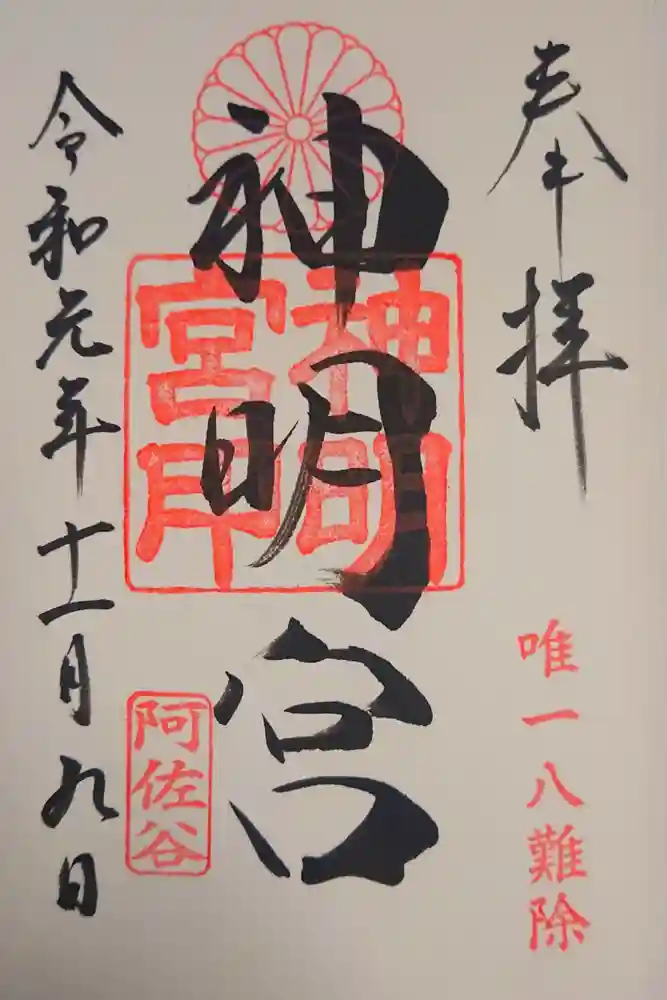 奉拝
唯一八難除
神明宮
神明宮印
阿佐谷
令和元年十一月九日